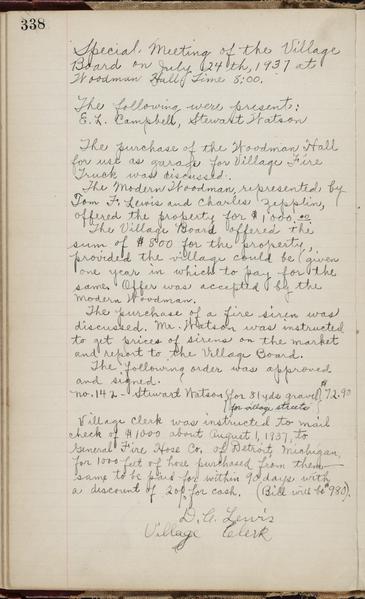 338
Special Meeting of the Village
Board on July 24th, 1937 at
Woodman Hall, Time 8:00.
The following were present:
E. L. Campbell, Stewart Watson
The purchase of the Woodman Hall
for use as garage for Village Fire
Truck was discussed.
The Modern Woodman, represented by
Tom F. Lewis and Charles Zepplin,
offered the property for $1,000.00
The Village Board offered the
sum of $800 for the property,
provided the village could be given
one year in which to pay for the
same. Offer was accepted by the
Modern Woodman.
The purchase of a fire siren was
discussed. Mr. Watson was instructed
to get prices of sirens on the market
and report to the Village Board.
The following order was approved
and signed.
no. 142 - Stewart Watson (for 31 yds gravel) $72.90
(for village streets)
Village Clerk was instructed to mail
check of $1000 about August 1, 1937, to
General Fire Hose Co. of Detroit, Michigan,
for 1000 feet of hose purchased from them
same to be paid for within 90 days with
a discount of for cash. (Bill will be $980).
D. A. Lewis
Village Clerk